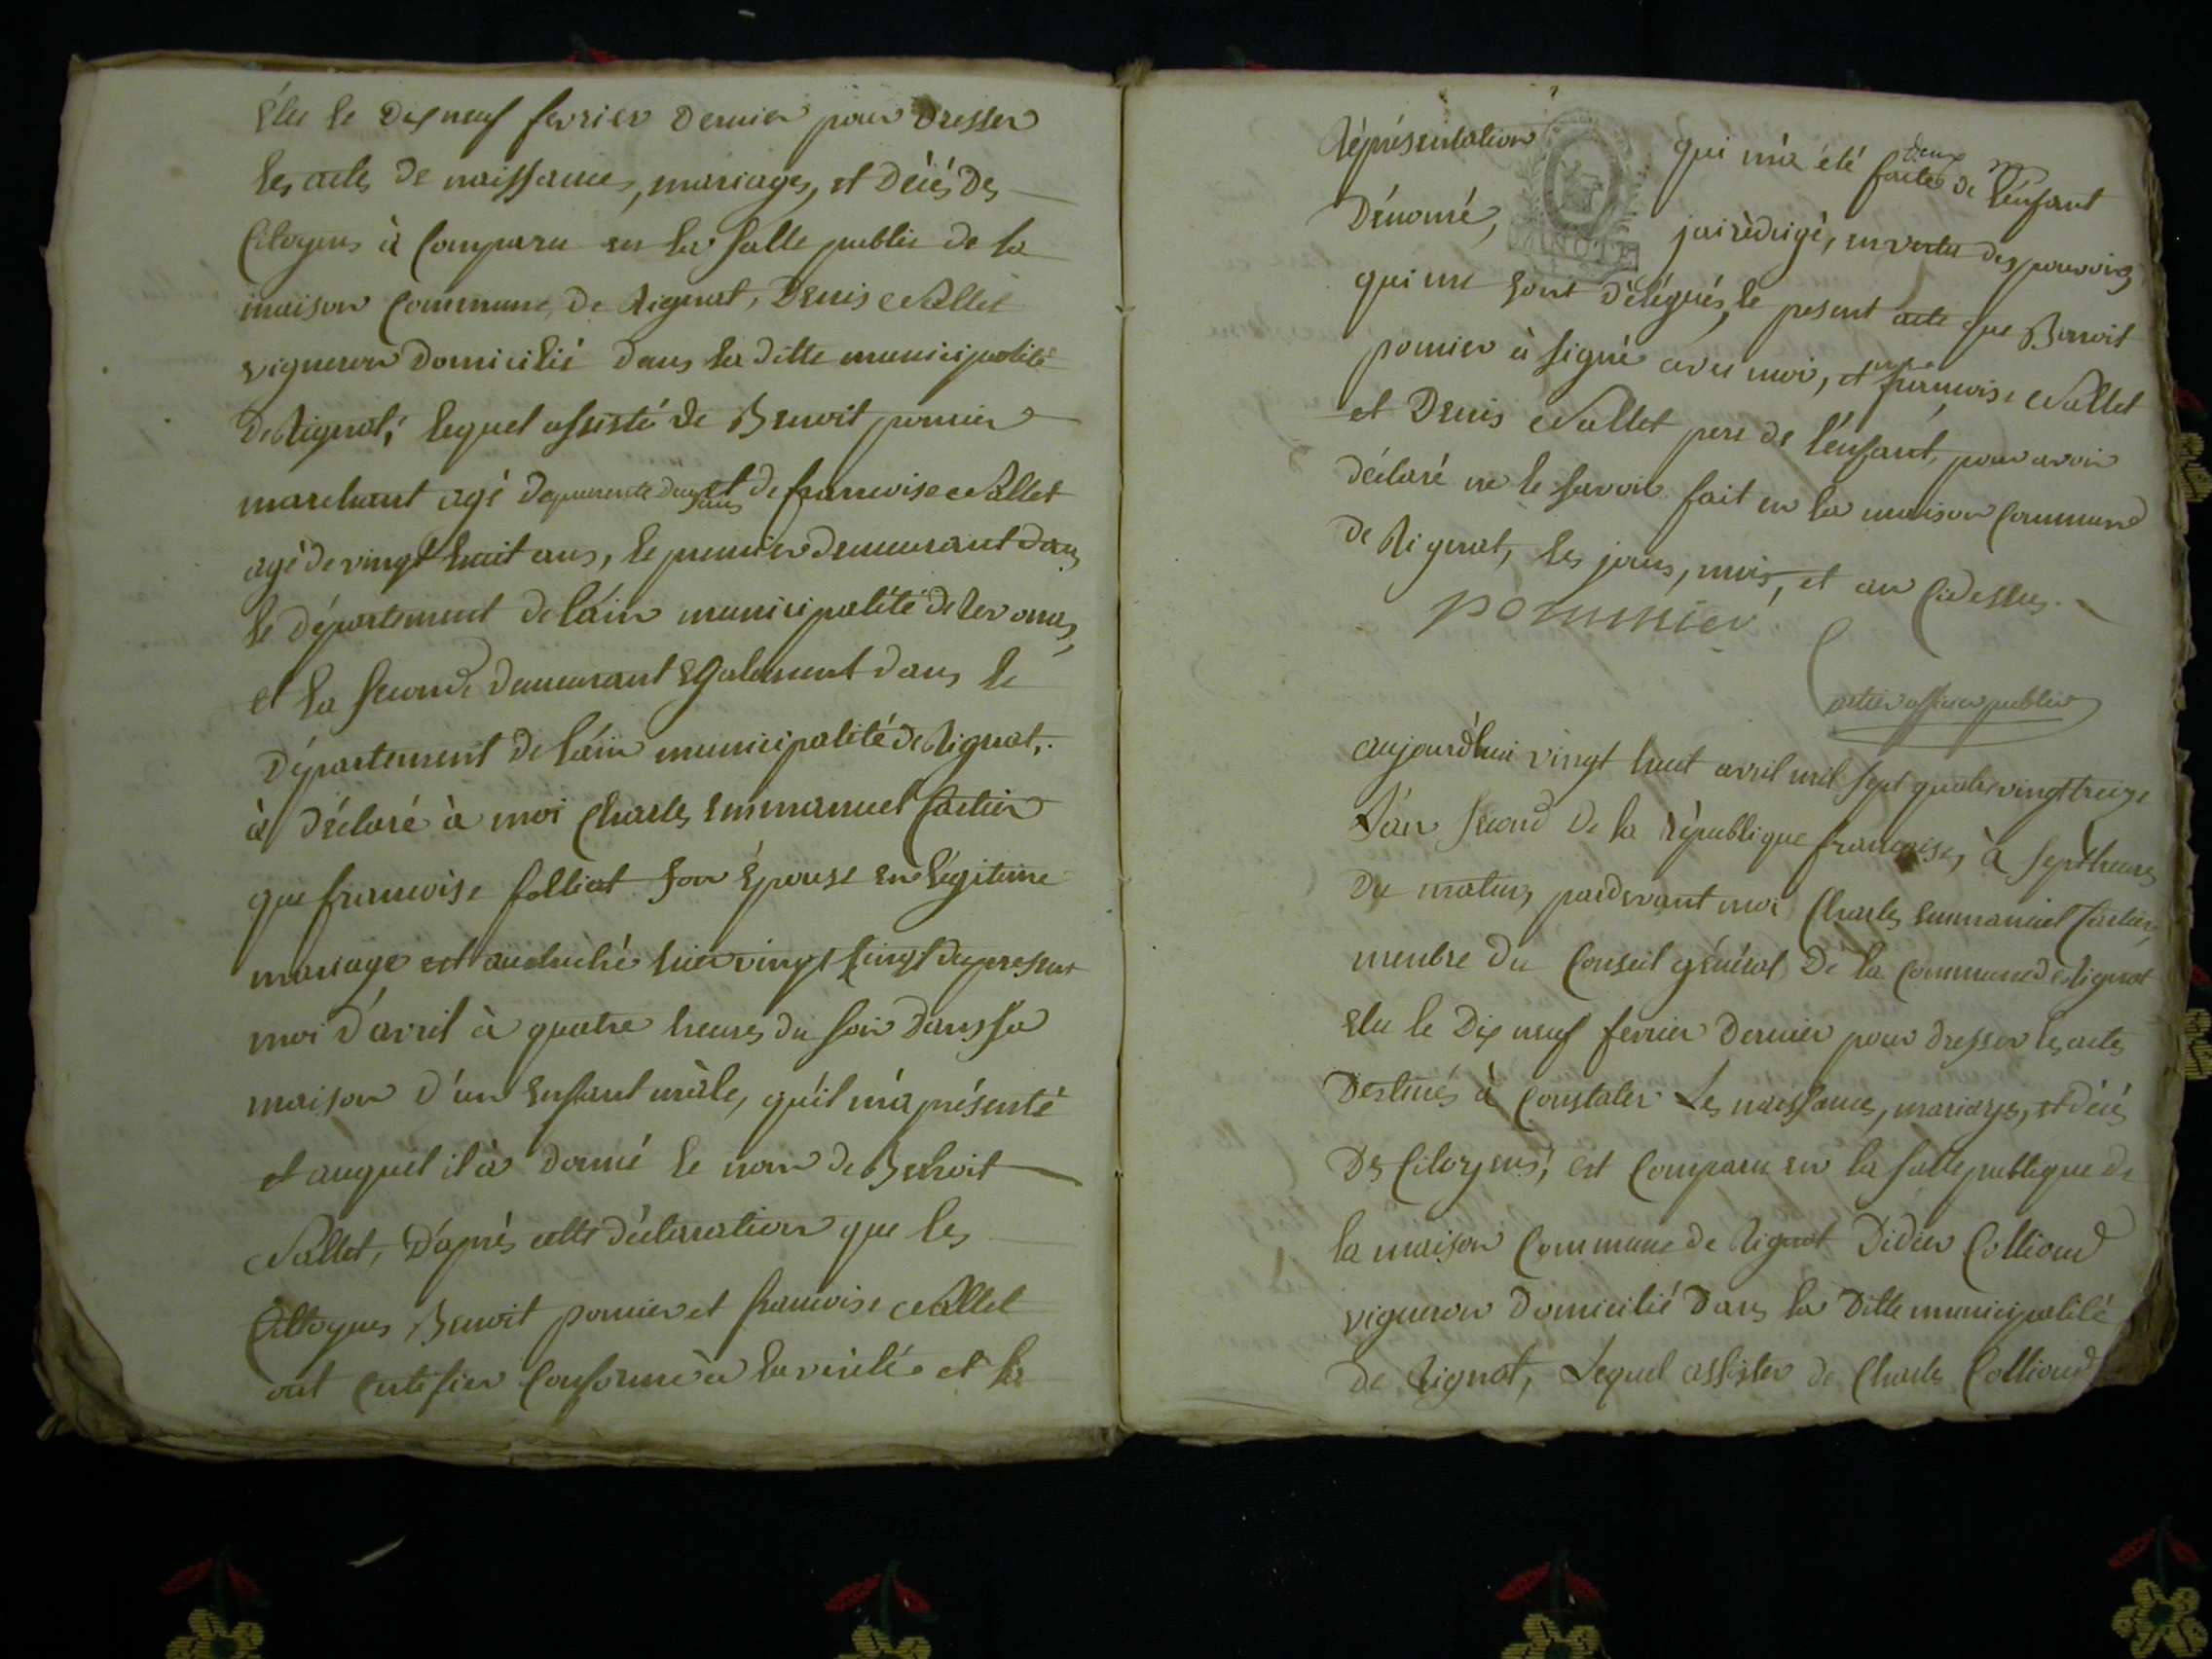 élu le dix neuf ferrier dernier pour dresser
les actes de naissances, mariages, et décés des
Citoyens à Comparu en la salle public de la
maison Commune, de Rignat, Denis Vallet
vigneron domicilié dans la ditte municipalité
de Rignat, lequel assisté de Benoit pomier
marchant agé de quarente deux ans et de francoise Vallet
agé de vingt huit ans, le premier demeurant dans
le département de l'ain municipalité de Revonas,
et la seconde demeurant Egalement dans le
Département de l'ain municipalité de Rignat,
à déclaré à moi Charles Emmanuel Cartier
que francoise folliat son épouse en légitime
mariage est auchuché hier vingt Cinqt du present
moi d'avril à quatre heures du soir dans sa
maison d'un Enfant mâle, qu'il m'a présenté
et auquel il à donné le nom de Benoit
Vallet, d'aprés cette déclaration que les
Cittoyens Benoit pomier et francoise Vallet
ont Certifier Conforme à la vérité et la
Réprésentation qui m'a été faite de l'enfant
Dénomé, jai rèdigé, en vertu des pouvoirs
qui me sont délégués, le pesent acte que Benoit
pomier à signé avec moi, et francoise Vallet
et Denis Vallet pere de l'enfant, pour avoir
déclaré ne le savoir fait en la maison Commune
de Rignat, les jours, mois, et an Cidessus.
pommier
Cartier officier public
aujourd'hui vingt huit avril mil sept quatrevingt treize
L'an second de la république francoise, à sept heures
du matin, pardevant moi Charles Emmanuel Cartier,
menbre du Conseil général de la Commune de Rignat
élu le dix neuf ferrier dernier pour dresser les actes
Destinés à Constater Les naissances, mariages, et décés
Des Citoyens, est Comparu en la salle publique de
la maison Commune de Rignat Didier Colliond
vigneron domicilié dans la ditte municipalité
de Rignat, Lequel assister de Charles Colliond